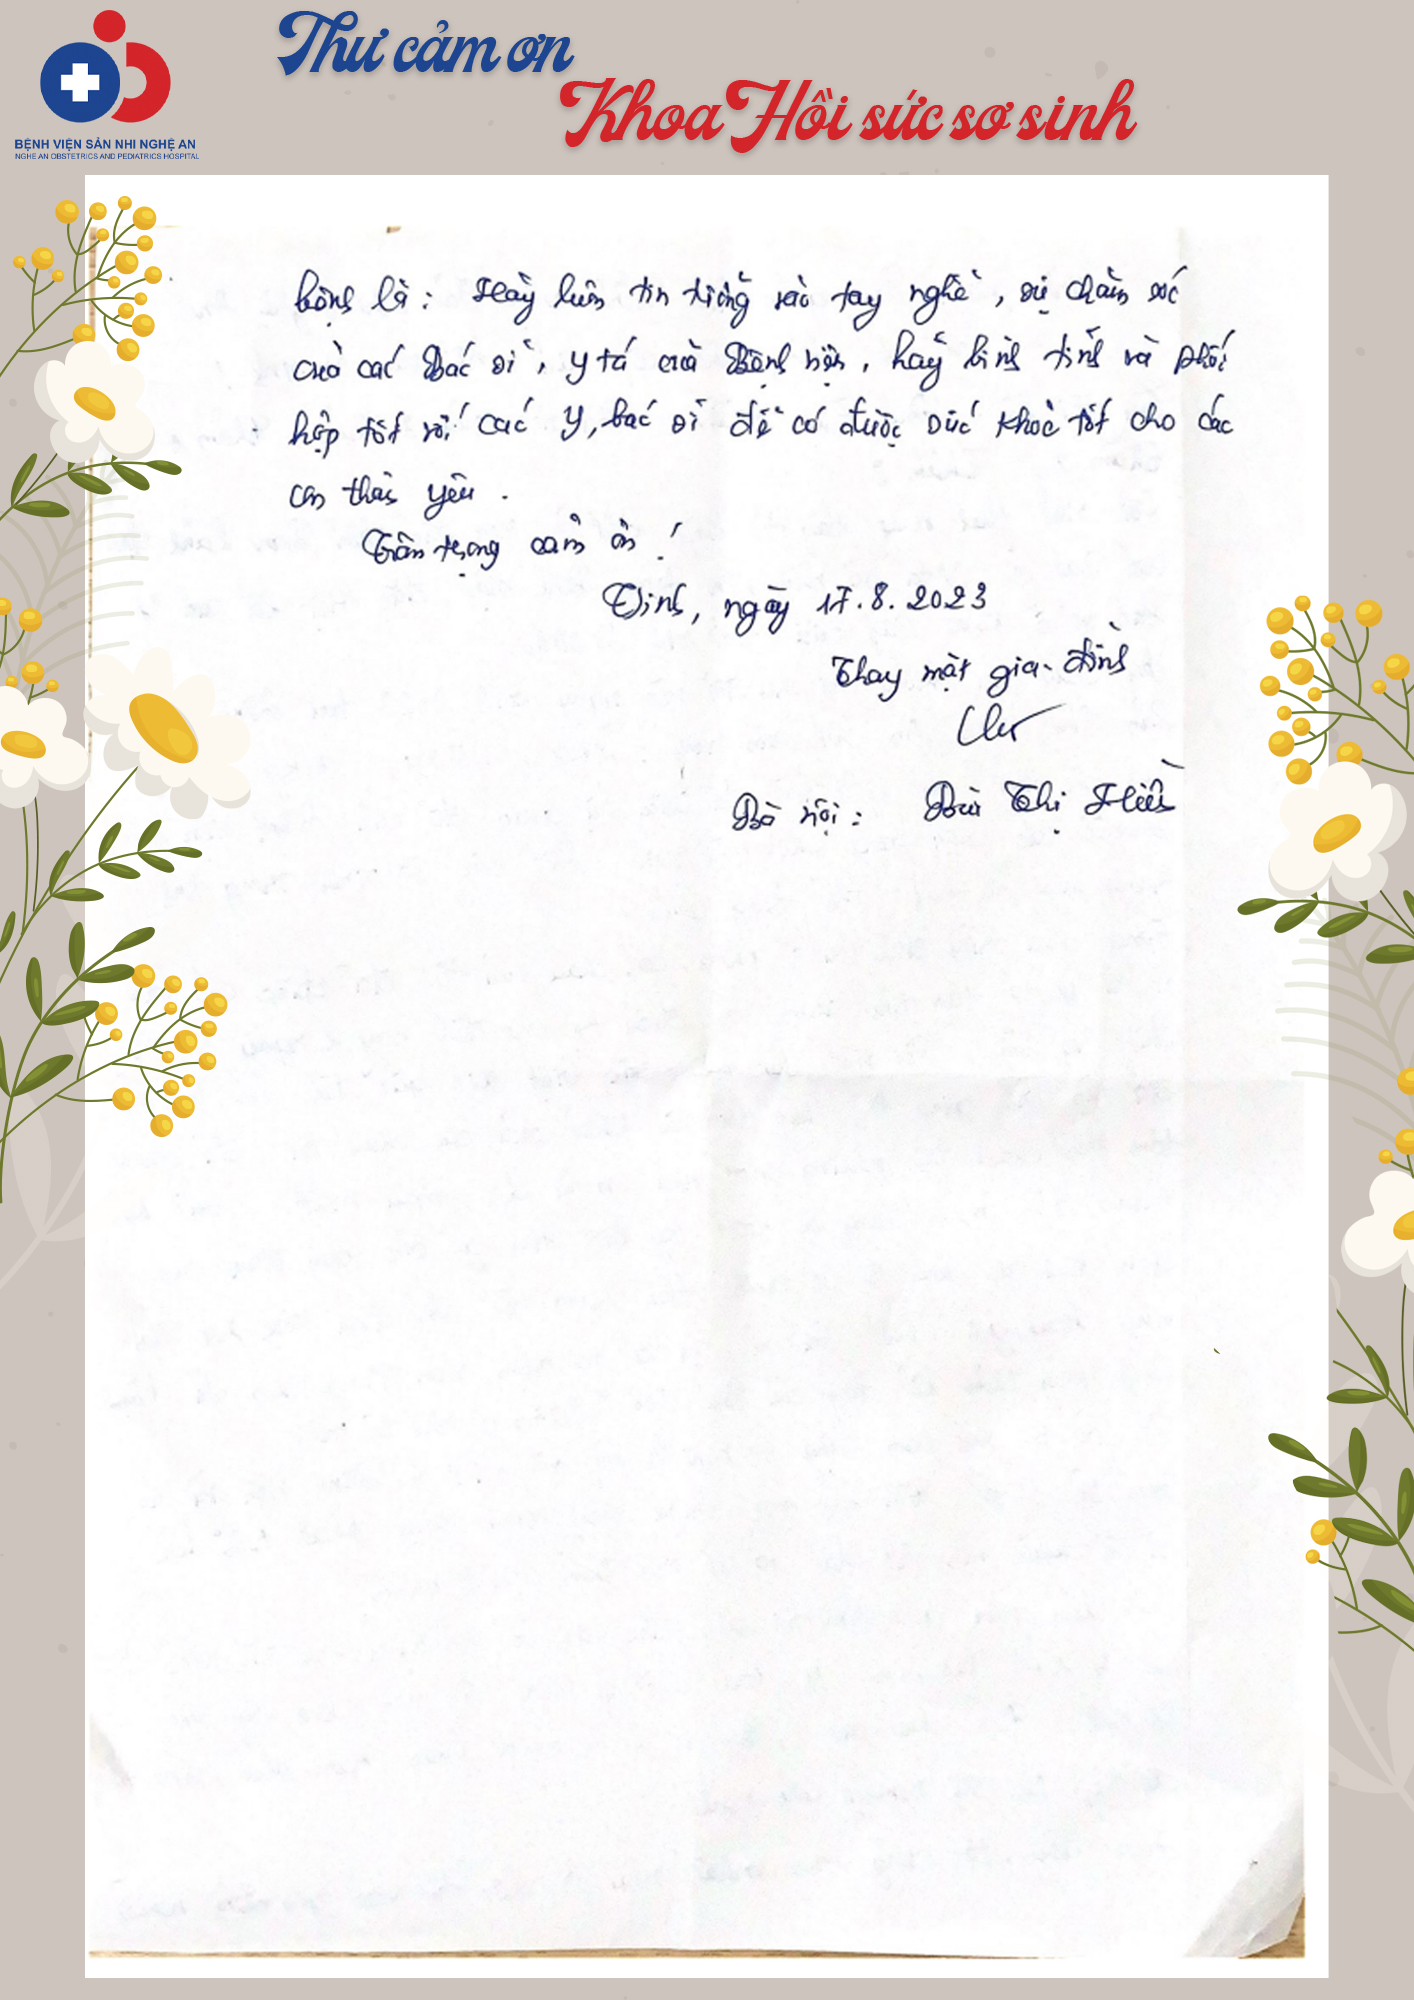 Thư cảm ơn
Khoa Hồi sức sơ sinh
BỆNH VIỆN SẢN NHI NGHỆ AN
NGHE AN OBSTETRICS AND PEDIATRICS HOSPITAL
là: Hãy luôn tin tưởng vào tay nghề, sự chăm sóc
của các Bác sĩ, y tá của Bệnh viện, hãy bình tĩnh và phối
hợp tốt với các Y, bác sĩ để có được sức khoẻ tốt cho các
con thân yêu.
Trân trọng cảm ơn!
Vinh, ngày 17.8.2023
Thay mặt gia đình
Bà nội: Bùi Thị Hiền